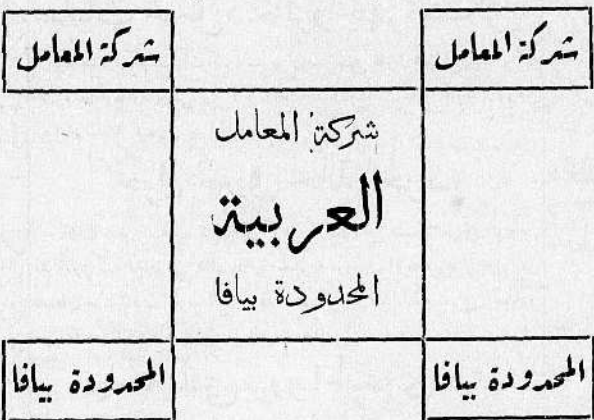 شركة المعامل
شركة المعامل
شركة المعامل
العربية
المحدودة بيافا
المحدودة بيافا
المحدودة بيافا